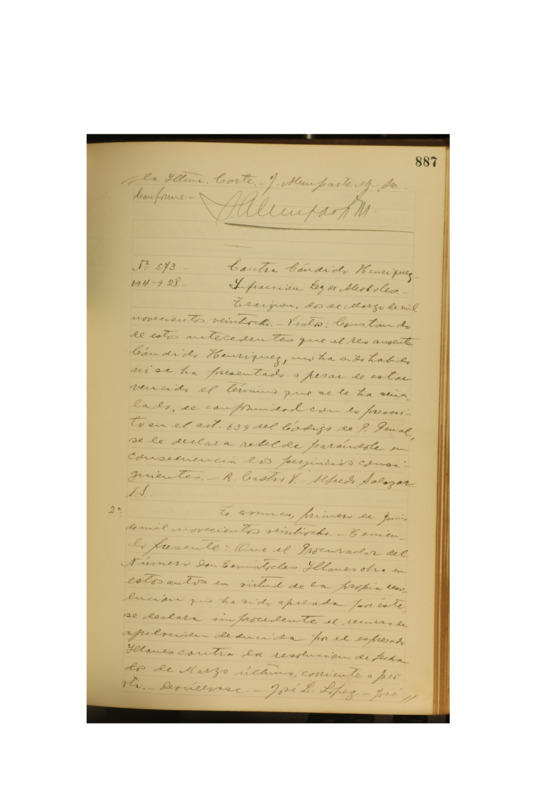 887
la Iltma. Corte. - J. Memparte
Conforme. -
Nº 573 - Contra Cándido Henriquez
Infraccion Ley de Alcoholes. -
Traiguen, dos de Marzo de mil
novecientos veintiocho. - Vistos: Constando
de estos antecedentes que el reo ausente
Cándido Henriquez, no ha sido habido
ni se ha presentado a pesar de estar
vencido el término que se le ha seña
lado, de conformidad con lo prescri
to en el art. 639 del Código de P. Penal,
se le declara rebelde parándole en
consecuencia los perjuicios consi
guientes. - R. Castro V. - Alfredo Salazar
S.S.
2ª Temuco, primero de
de mil novecientos veintiocho. - Tenien
do presente: Que el Procurador del
Número Don Temístocles Illanes obra en
estos autos en virtud de la propia reso
lucion que ha sido apelada por éste,
se declara improcedente el recurso de
apelacion deducida por el expresado
Illanes contra la resolucion de fecha
dos de Marzo último, corriente a fjs
Devuélvase. - José L. López - José